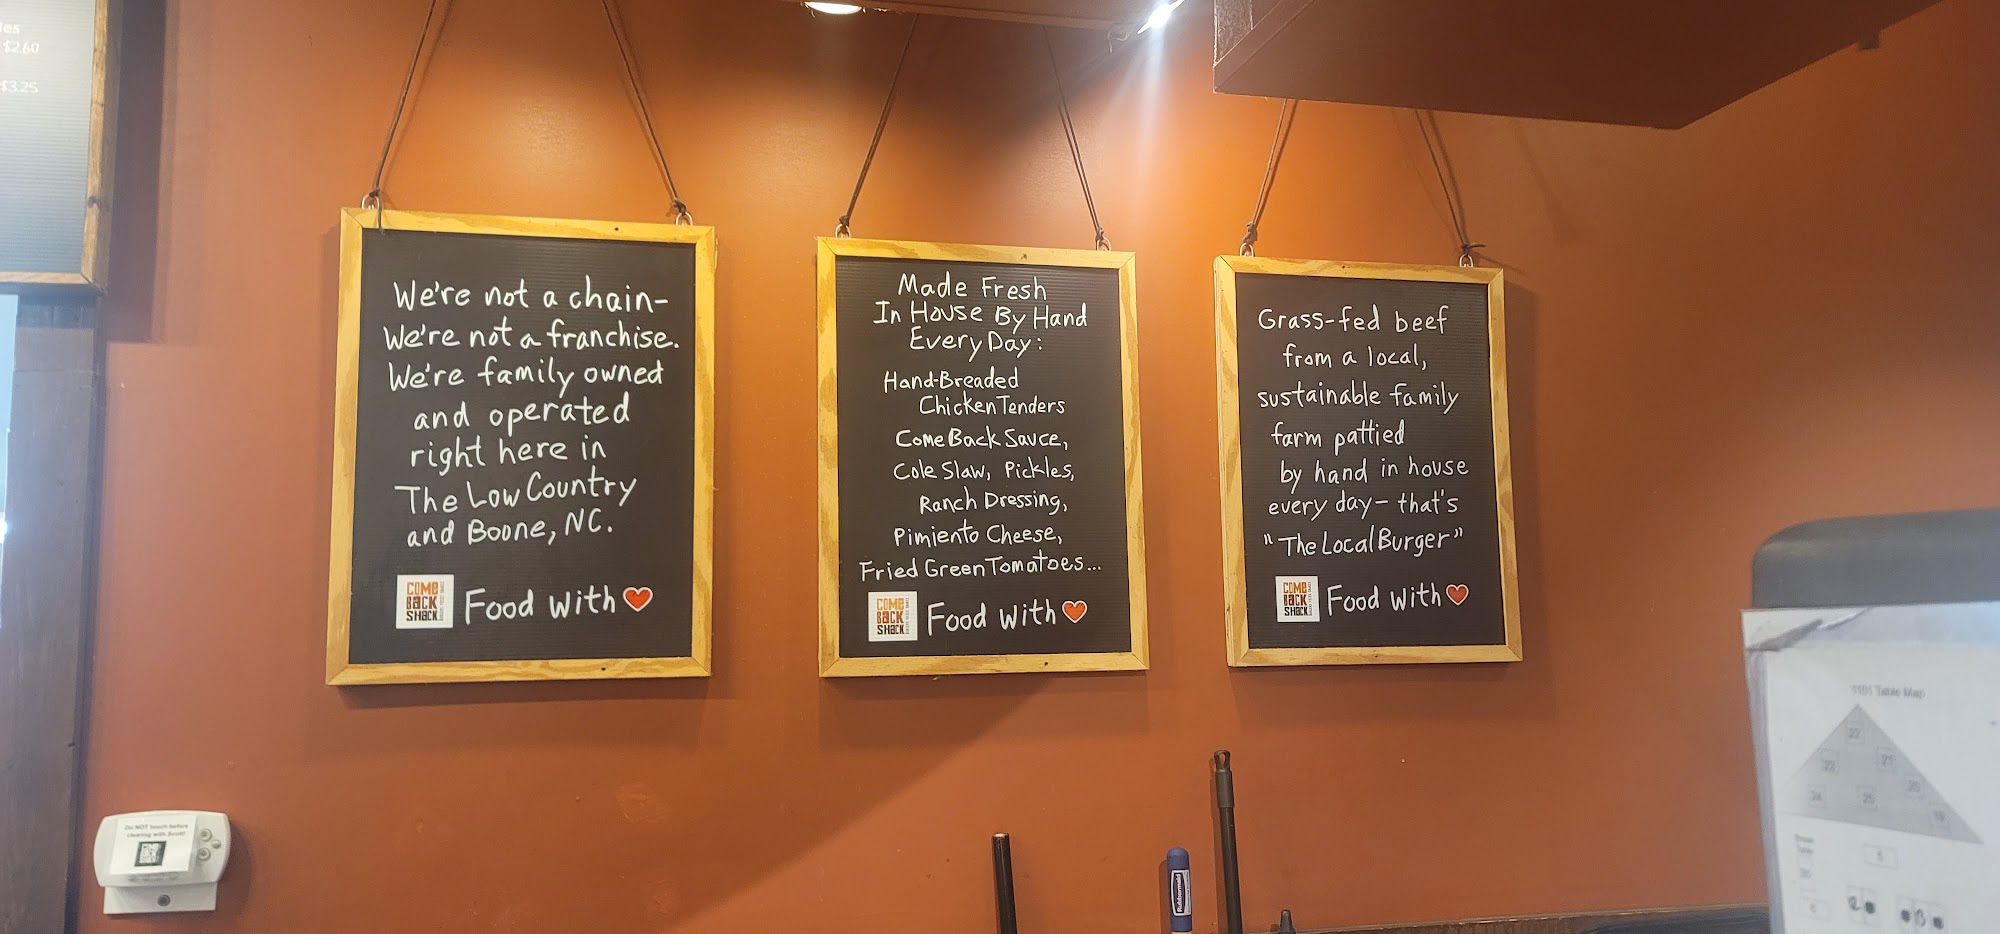 $2.60
$3.25
We're not a chain-
We're not a franchise.
We're family owned
and operated
right here in
The Low Country
and Boone, NC.
COME
BACK
SHACK
Food with
Made Fresh
In House By Hand
Every Day:
Hand-Breaded
Chicken Tenders
Come Back Sauce,
Cole Slaw, Pickles,
Ranch Dressing,
Pimiento Cheese,
Fried Green Tomatoes...
COME
BACK
SHACK
Food with
Grass-fed beef
from a local,
sustainable family
farm pattied
by hand in house
every day- that's
"The Local Burger"
COME
BACK
SHACK
Food with
Do NOT touch before
clearing with Scott!
Rubbermaid
1101 Table Map
22
23 21
24 25 20 19
5
6